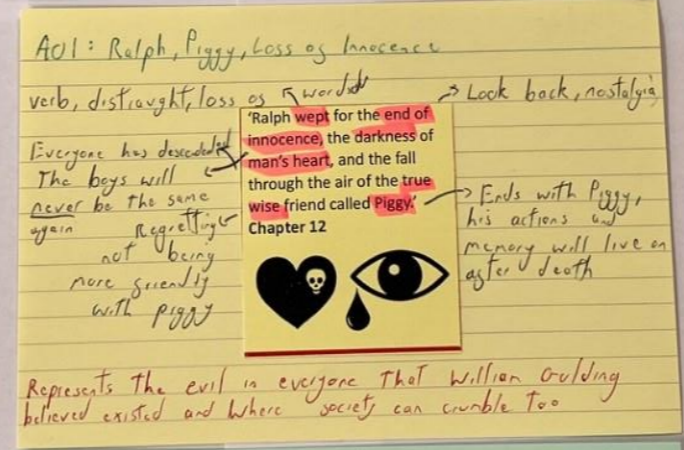 AO1: Ralph, Piggy, Loss of Innocence
verb, distraught, loss of words
Look back, nostalgia
'Ralph wept for the end of
innocence, the darkness of
man's heart, and the fall
through the air of the true
wise friend called Piggy.'
Chapter 12
Everyone has descended
The boys will
never be the same
again
Regretting
not being
more friendly
with piggy
Ends with Piggy,
his actions and
memory will live on
after death
Represents the evil in everyone that William Goulding
believed existed and where society can crumble too